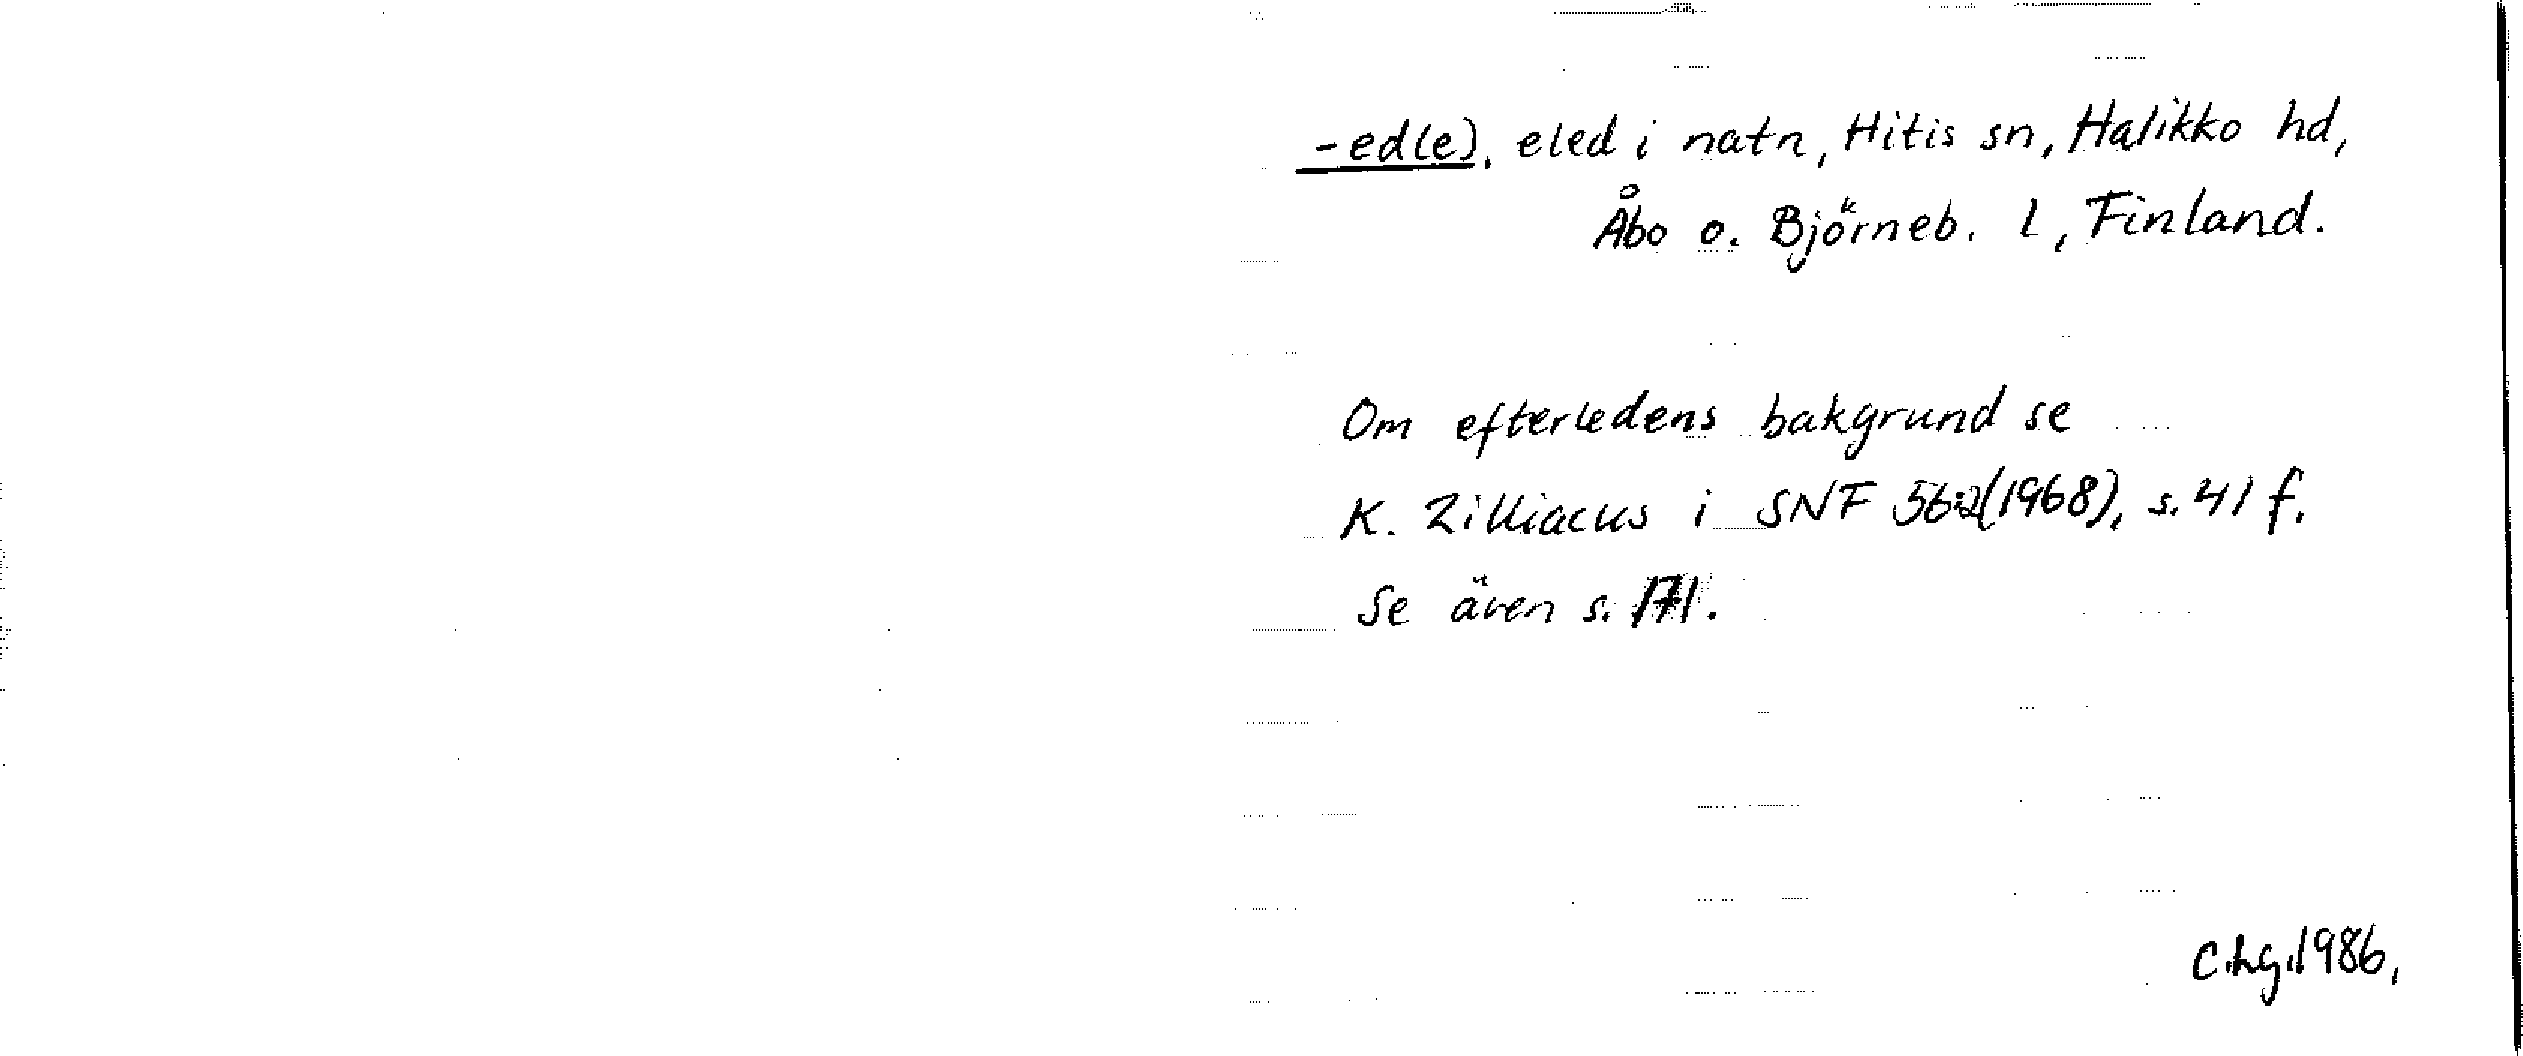 -ed(e), eled i natn, Hitis sn, Halikko hd,
Åbo o. Björneb. l, Finland.
Om efterledens bakgrund se
K. Zilliacus i SNF 56:2(1968), s. 41 f.
Se även s. 171.
C.hg.1986,